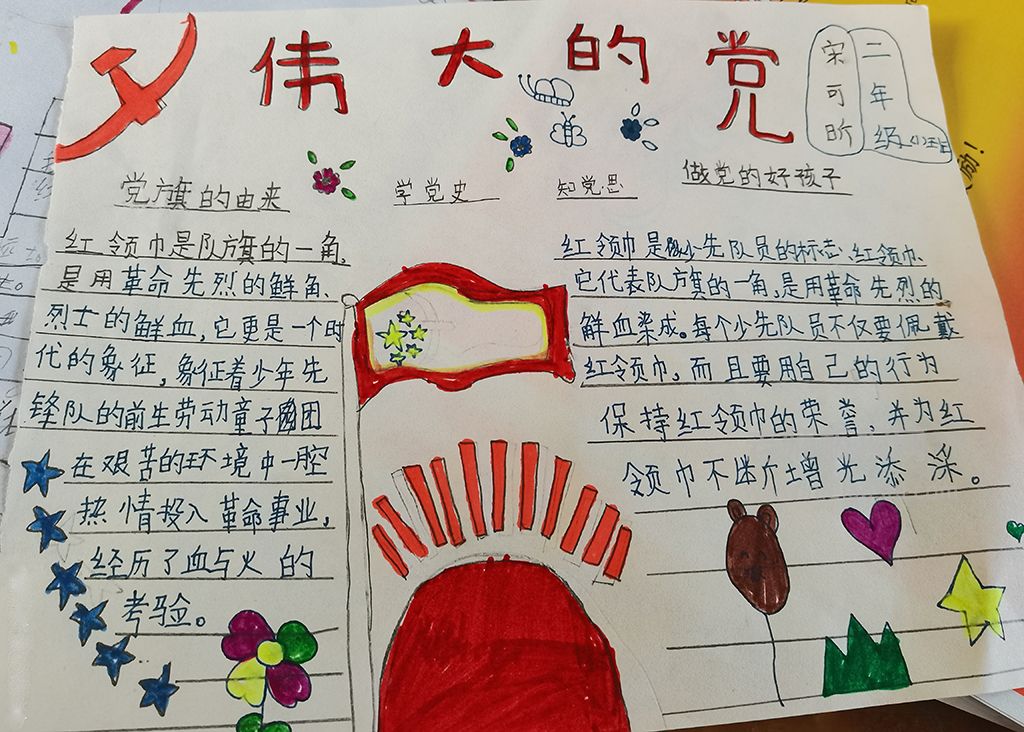 伟大的党
宋可昕
二年级(1)班
党旗的由来
学党史
知党恩
做党的好孩子
红领巾是队旗的一角、
是用革命先烈的鲜角、
烈士的鲜血，它更是一个时
代的象征，象征着少年先
锋队的前生劳动童子团
在艰苦的环境中一腔
热情投入革命事业，
经历了血与火的
考验。
红领巾是少先队员的标志、红领巾、
它代表队旗的一角，是用革命先烈的
鲜血染成。每个少先队员不仅要佩戴
红领巾，而且要用自己的行为
保持红领巾的荣誉，并为红
领巾不断增光添深。